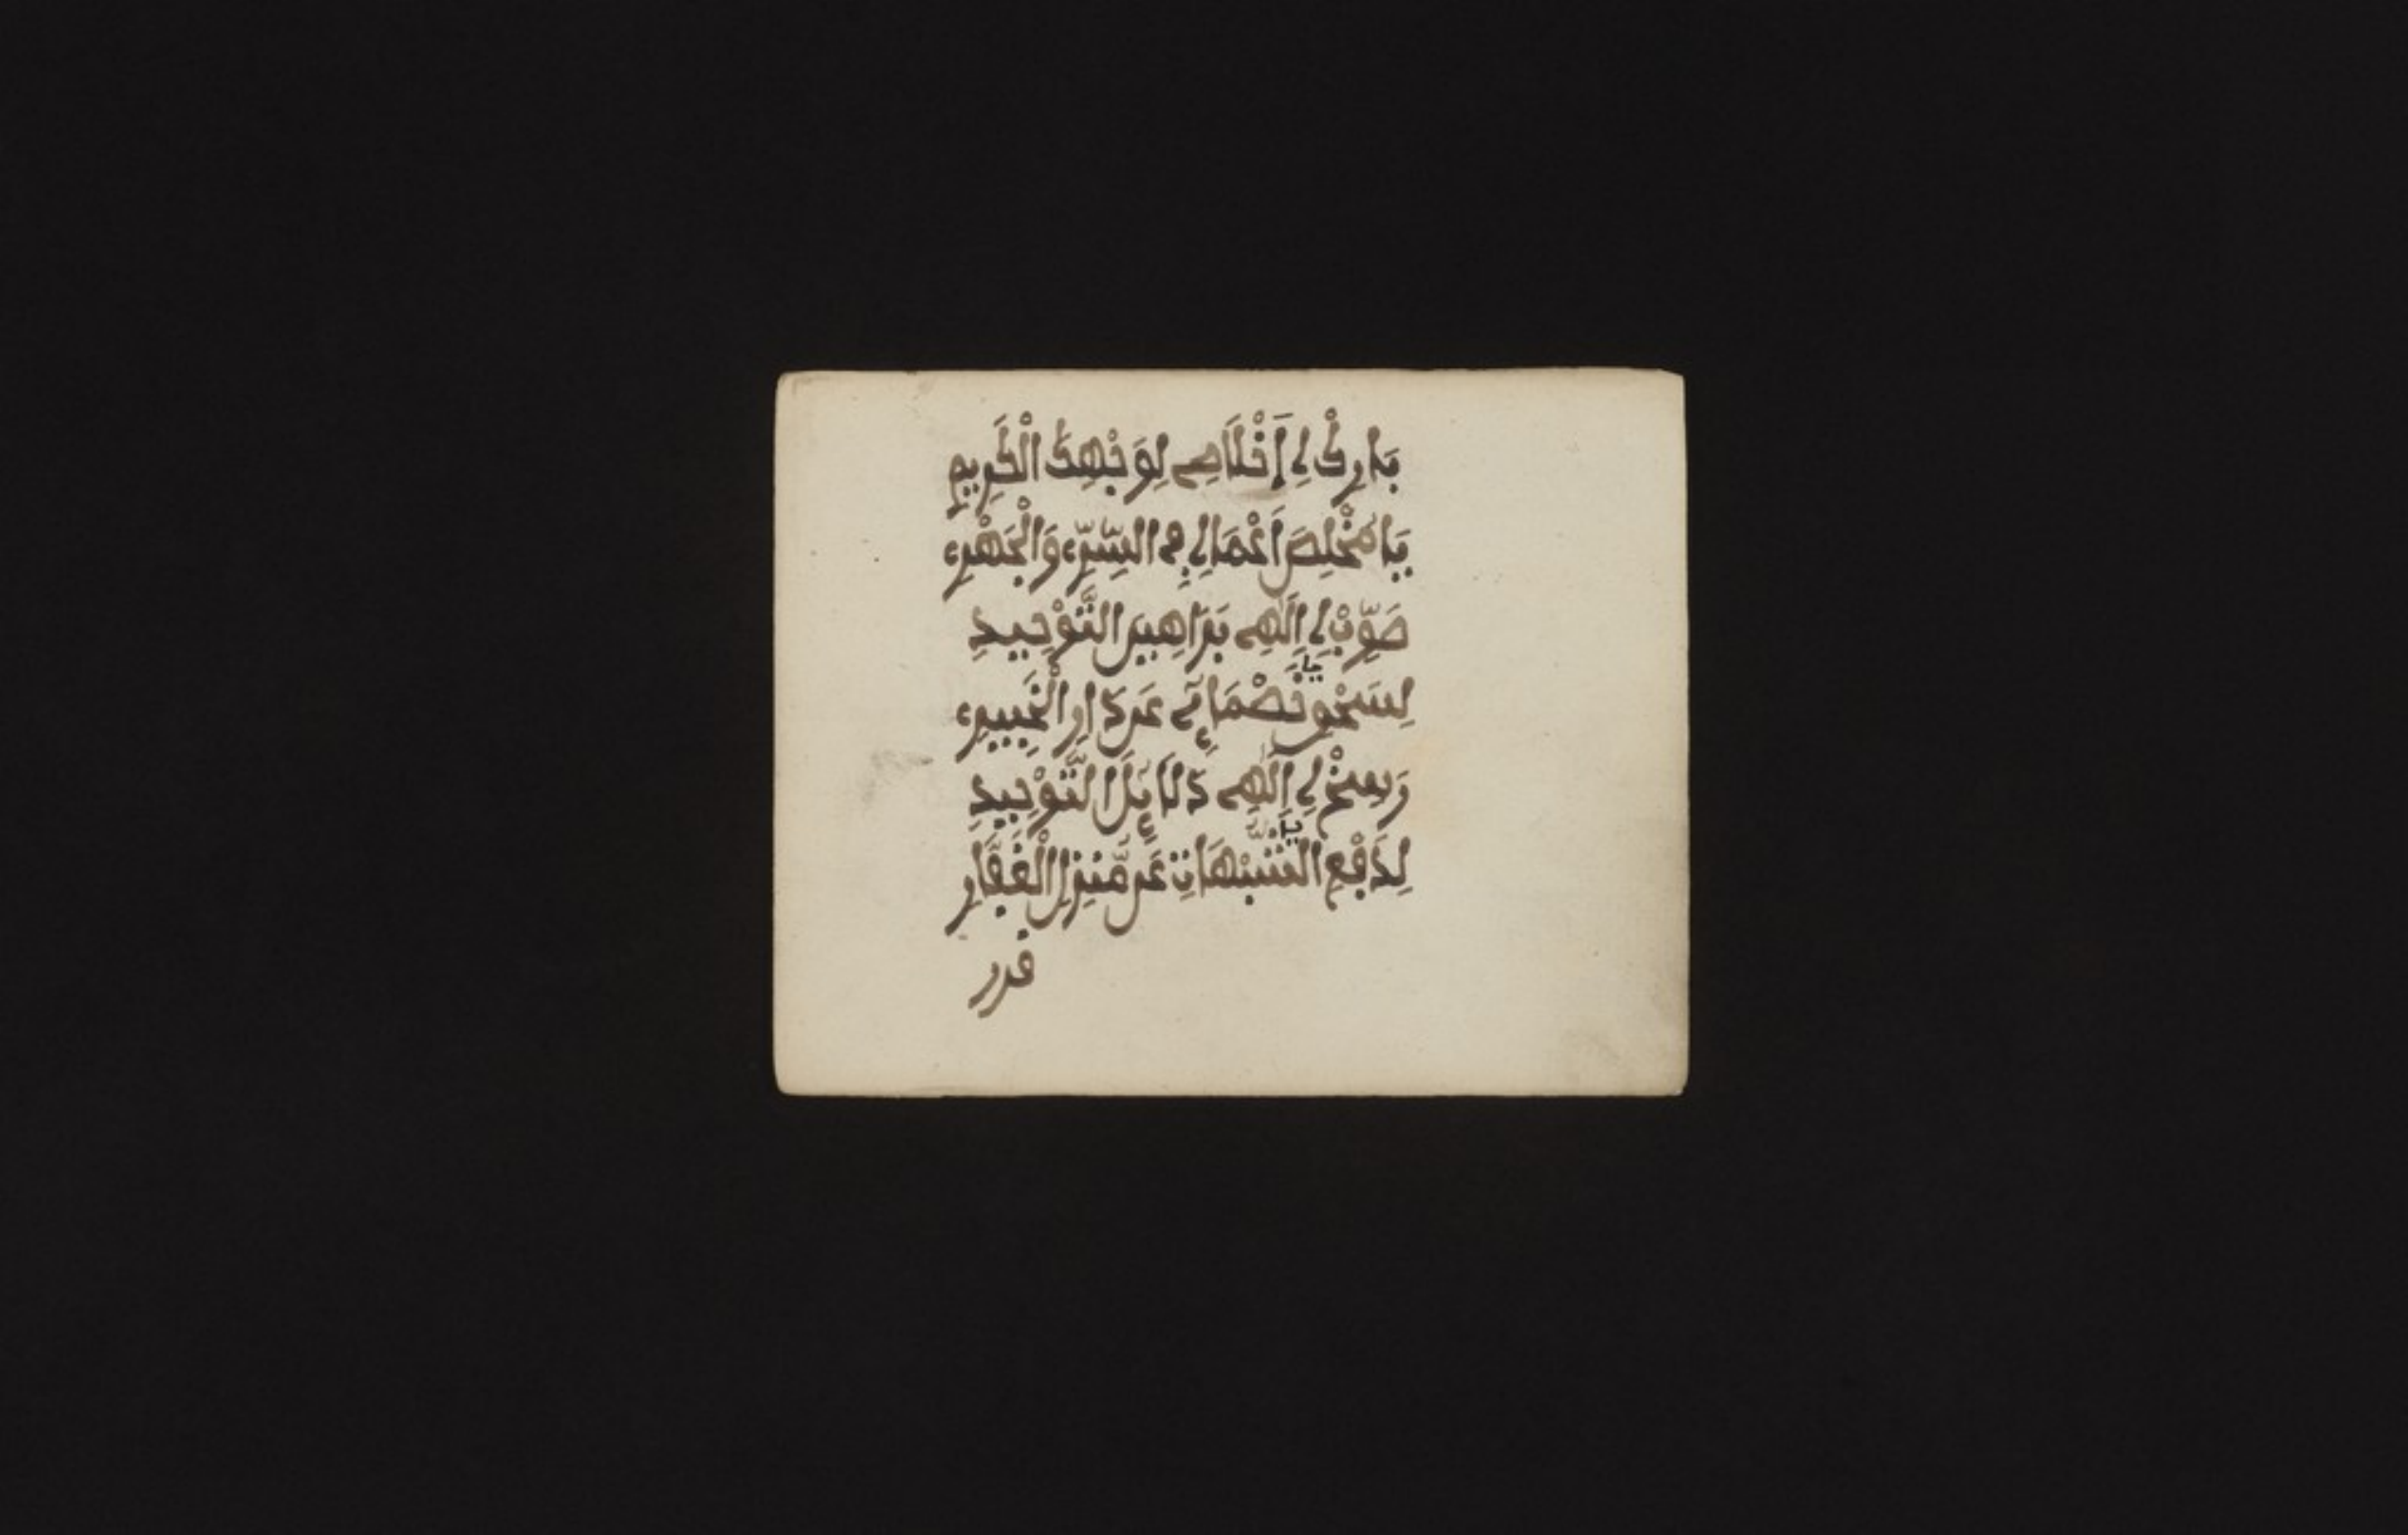 بَارِكْ لِي إِخْلَاصِي لِوَجْهِكَ الْكَرِيمِ
يَا مُخْلِصَ أَعْمَالِي فِي السِّرِّ وَالْجَهْرِ
صَوِّبْ لِي إِلَهِي بَرَاهِينَ التَّوْحِيدِ
لِسَحْقِ خَصْمَائِي عَن دَارِ الْخَبِيرِ
وَسِّخْ لِي إِلَهِي دَلَائِلَ التَّوْحِيدِ
لِدَفْعِ الشُّبُهَاتِ عَن مَّنزِلِ الْغَفَّارِ